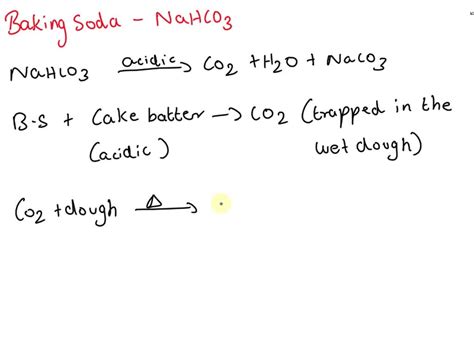 Baking Soda - NaHCO3
NaHCO3 acidic → CO2 + H2O + NaCO3
B.S + Cake batter → CO2 (trapped in the
(acidic) wet dough)
CO2 + dough Δ →